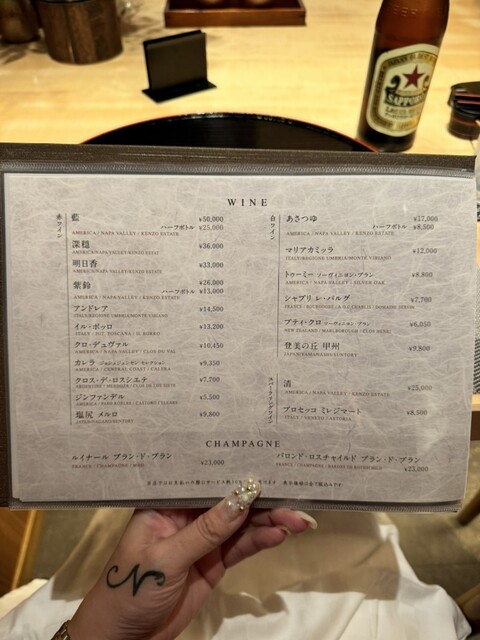 SAPPORO
WINE
赤ワイン
藍 ¥50,000
ハーフボトル ¥25,000
AMERICA / NAPA VALLEY / KENZO ESTATE
深穏 ¥36,000
AMERICA/NAPA VALLEY/KENZO ESTATE
明日香 ¥33,000
AMERICA/NAPA VALLEY/KENZO ESTATE
紫鈴 ¥26,000
ハーフボトル ¥13,000
AMERICA / NAPA VALLEY / KENZO ESTATE
アンドレア ¥14,500
ITALY/REGIONE UMBRIA/MONTE VIBIANO
イル・ボッロ ¥13,200
ITALY / IGT. TOSCANA / IL BORRO
クロ・デュヴァル ¥10,450
AMERICA / NAPA VALLEY / CLOS DU VAL
カレラ ジョシュジェンセン セレクション ¥9,350
AMERICA / CENTRAL COAST / CALERA
クロス・デ・ロス・シエテ ¥7,700
ARGENTINE / MENDOZA / CLOS DE LOS SIETE
ジンファンデル ¥5,500
塩尻 メルロ ¥9,800
JAPAN/NAGANO/SUNTORY
白ワイン
あさつゆ ¥17,000
ハーフボトル ¥8,500
AMERICA / NAPA VALLEY / KENZO ESTATE
マリアカミッラ ¥12,000
ITALY/REGIONE UMBRIA/MONTE VIBIANO
トゥーミー ソーヴィニヨン・ブラン ¥8,800
AMERICA / NAPA VALLEY / SILVER OAK
シャブリ レ・バルグ ¥7,700
プティ・クロ ソーヴィニヨン ブラン ¥6,050
NEW ZEALAND / MARLBOROUGH / CLOS HENRI
登美の丘 甲州 ¥9,800
JAPAN/YAMANASHI/SUNTORY
スパークリングワイン
清 ¥25,000
AMERICA / NAPA VALLEY / KENZO ESTATE
プロセッコ ミレジマート ¥8,500
ITALY / VENETO / ASTORIA
CHAMPAGNE
ルイナール ブラン・ド・ブラン ¥23,000
バロンド・ロスチャイルド ブラン・ド・ブラン ¥23,000